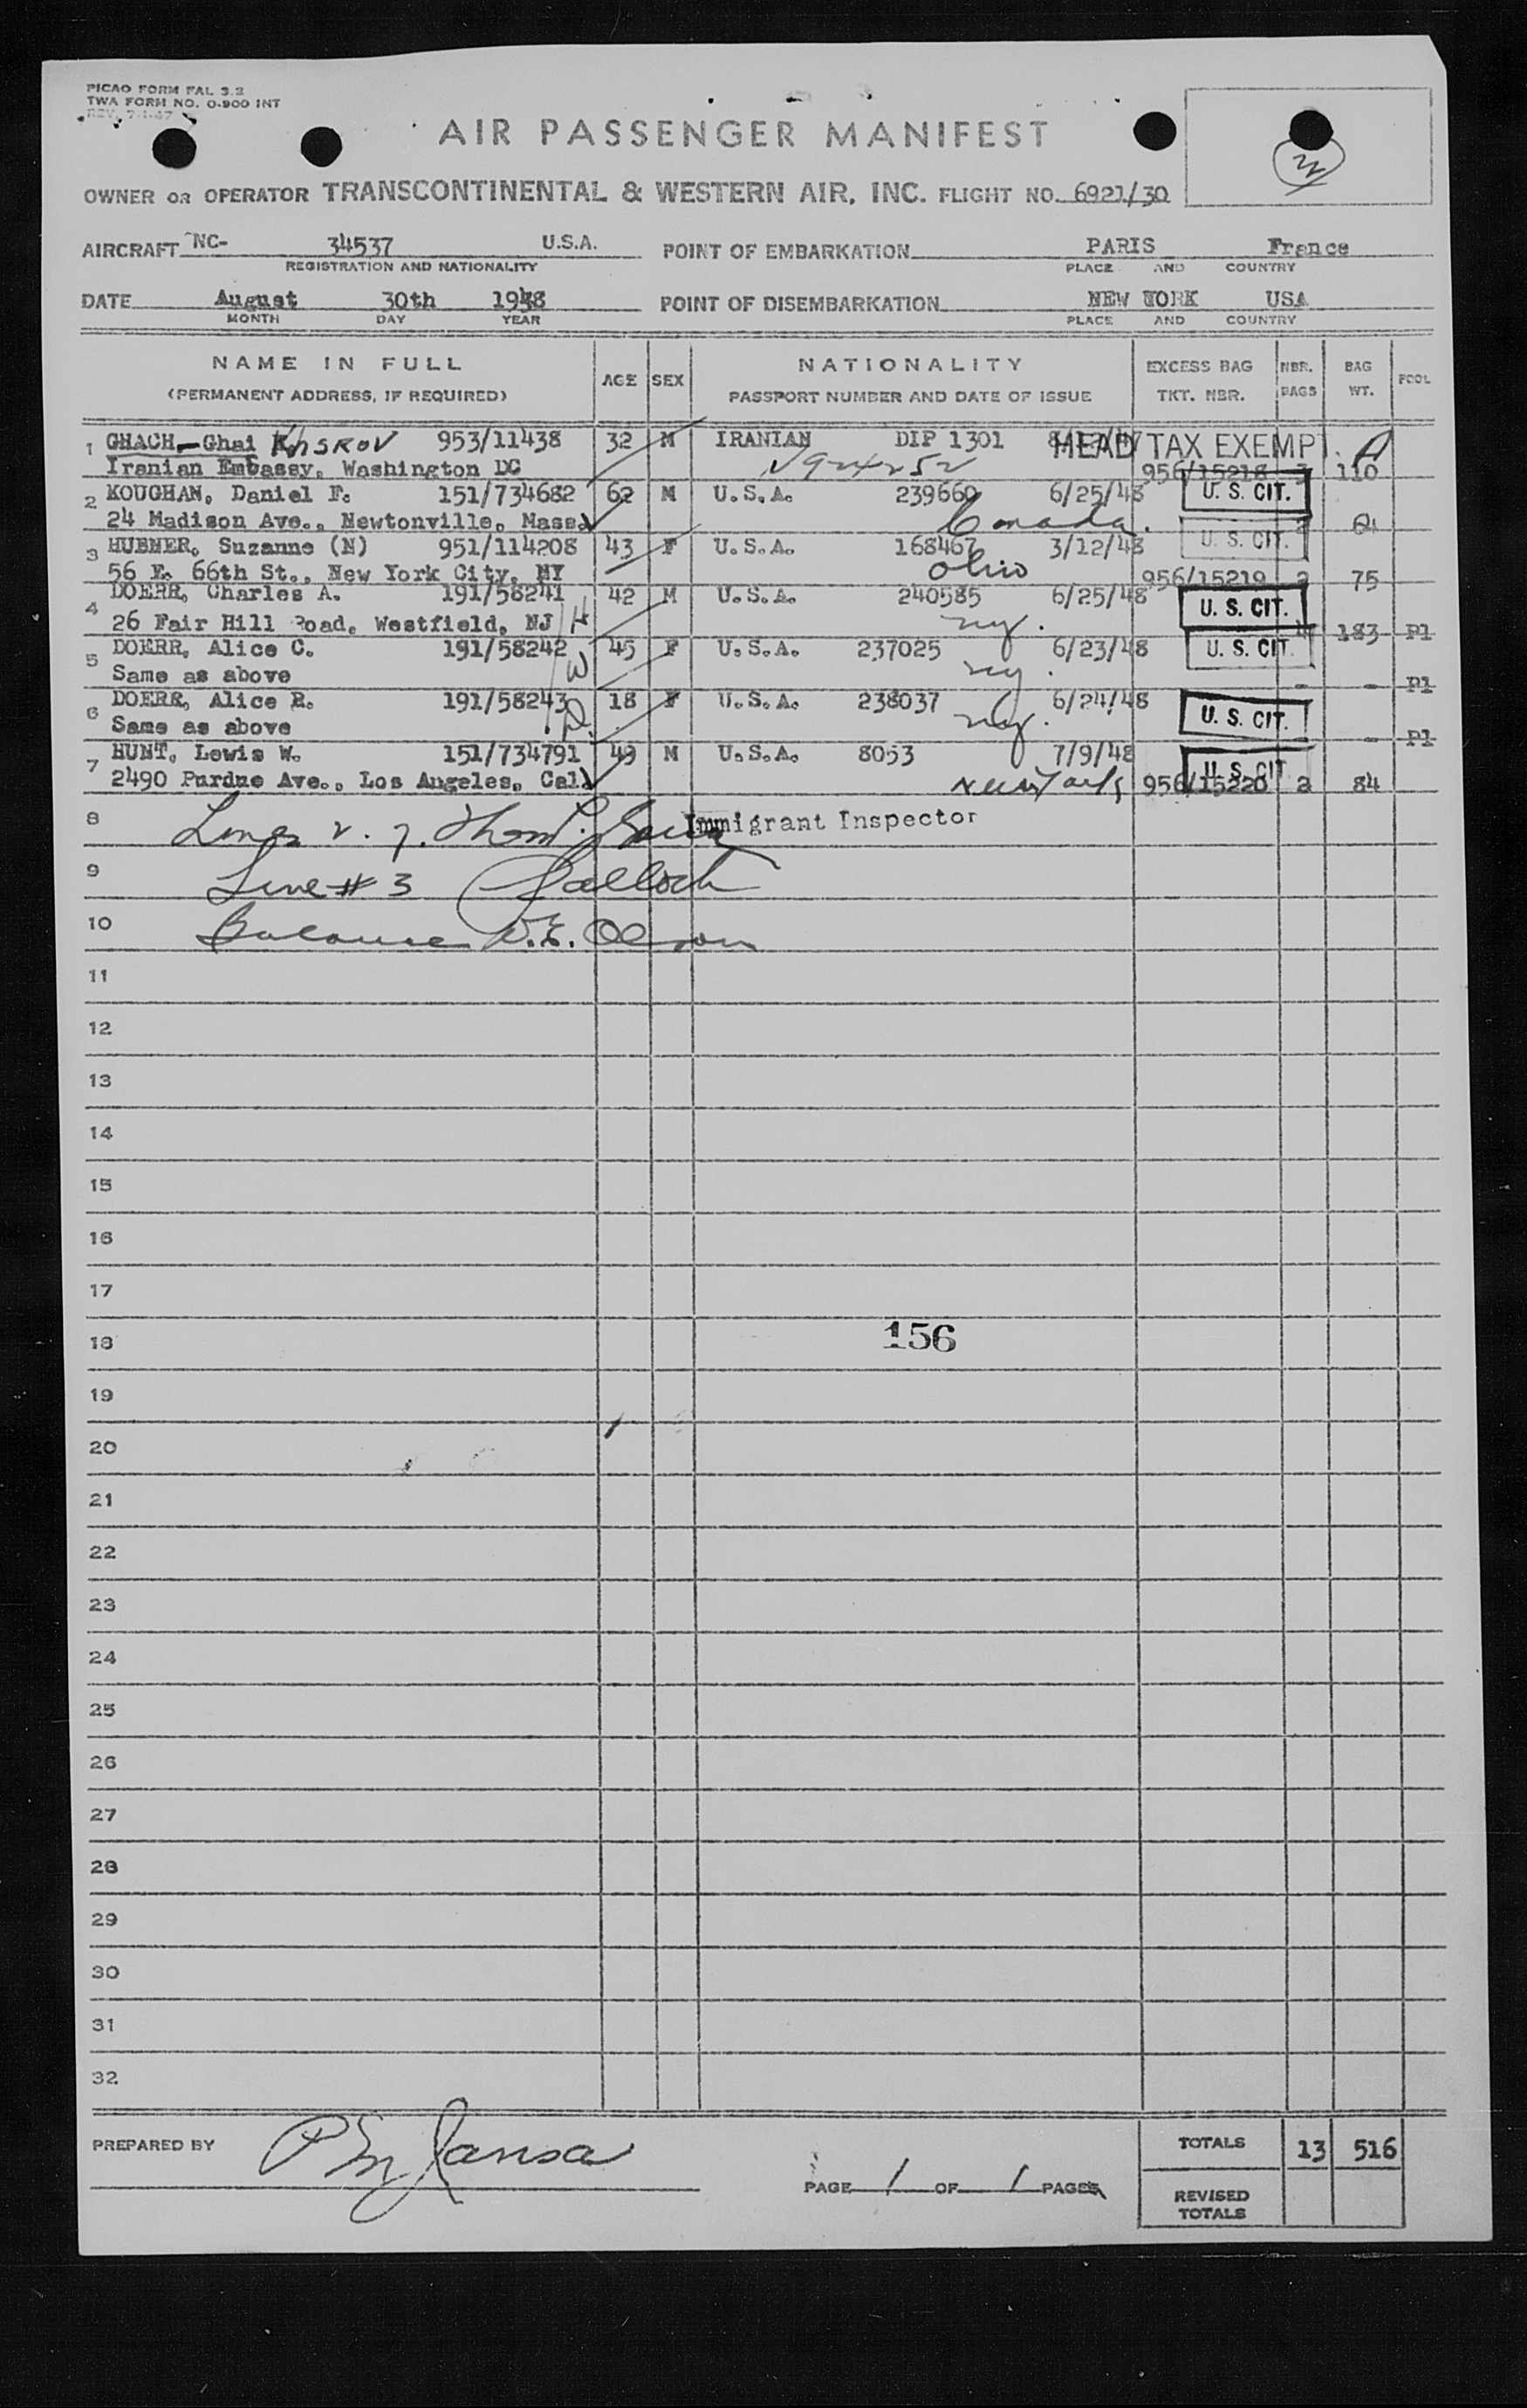 PICAO FORM FAL 3.2
TWA FORM NO. O-900 INT
REV. 7-1-47
AIR PASSENGER MANIFEST
OWNER OR OPERATOR TRANSCONTINENTAL & WESTERN AIR, INC. FLIGHT NO. 6921/30
AIRCRAFT NC- 34537 U.S.A. POINT OF EMBARKATION PARIS France
REGISTRATION AND NATIONALITY PLACE AND COUNTRY
DATE August 30th 1948 POINT OF DISEMBARKATION NEW YORK USA
MONTH DAY YEAR PLACE AND COUNTRY
NAME IN FULL AGE SEX NATIONALITY EXCESS BAG NBR. BAG POOL
(PERMANENT ADDRESS, IF REQUIRED) PASSPORT NUMBER AND DATE OF ISSUE TKT. NBR. BAGS WT.
1 GHACH-Ghai KHSROV 953/11438 32 M IRANIAN DIP 1301 HEAD TAX EXEMPT. A
Iranian Embassy, Washington DC V924252 956/15218 3 110
2 KOUGHAN, Daniel F. 151/734682 62 M U.S.A. 239660 6/25/48 U. S. CIT.
24 Madison Ave., Newtonville, Mass. Canada. 2 64
3 HUBNER, Suzanne (N) 951/114208 43 F U.S.A. 168467 3/12/48 U. S. CIT.
56 E. 66th St., New York City, NY Ohio 956/15219 2 75
4 DOERR, Charles A. 191/58241 42 M U.S.A. 240585 6/25/48 U. S. CIT.
26 Fair Hill Road, Westfield, NJ H ny. 4 183 Pl
5 DOERR, Alice C. 191/58242 45 F U.S.A. 237025 6/23/48 U. S. CIT.
Same as above W ny. - - Pl
6 DOERR, Alice R. 191/58243 18 F U.S.A. 238037 6/24/48 U. S. CIT.
Same as above D. ny. - Pl
7 HUNT, Lewis W. 151/734791 49 M U.S.A. 8053 7/9/48 U. S. CIT.
2490 Purdue Ave., Los Angeles, Cal. New York 956/15220 2 84
8 Lines 2. 7. Immigrant Inspector
9 Line # 3
10 Balance W.E. Olson
11
12
13
14
15
16
17
18 156
19
20
21
22
23
24
25
26
27
28
29
30
31
32
PREPARED BY P M Jansa TOTALS 13 516
PAGE 1 OF 1 PAGES
REVISED
TOTALS